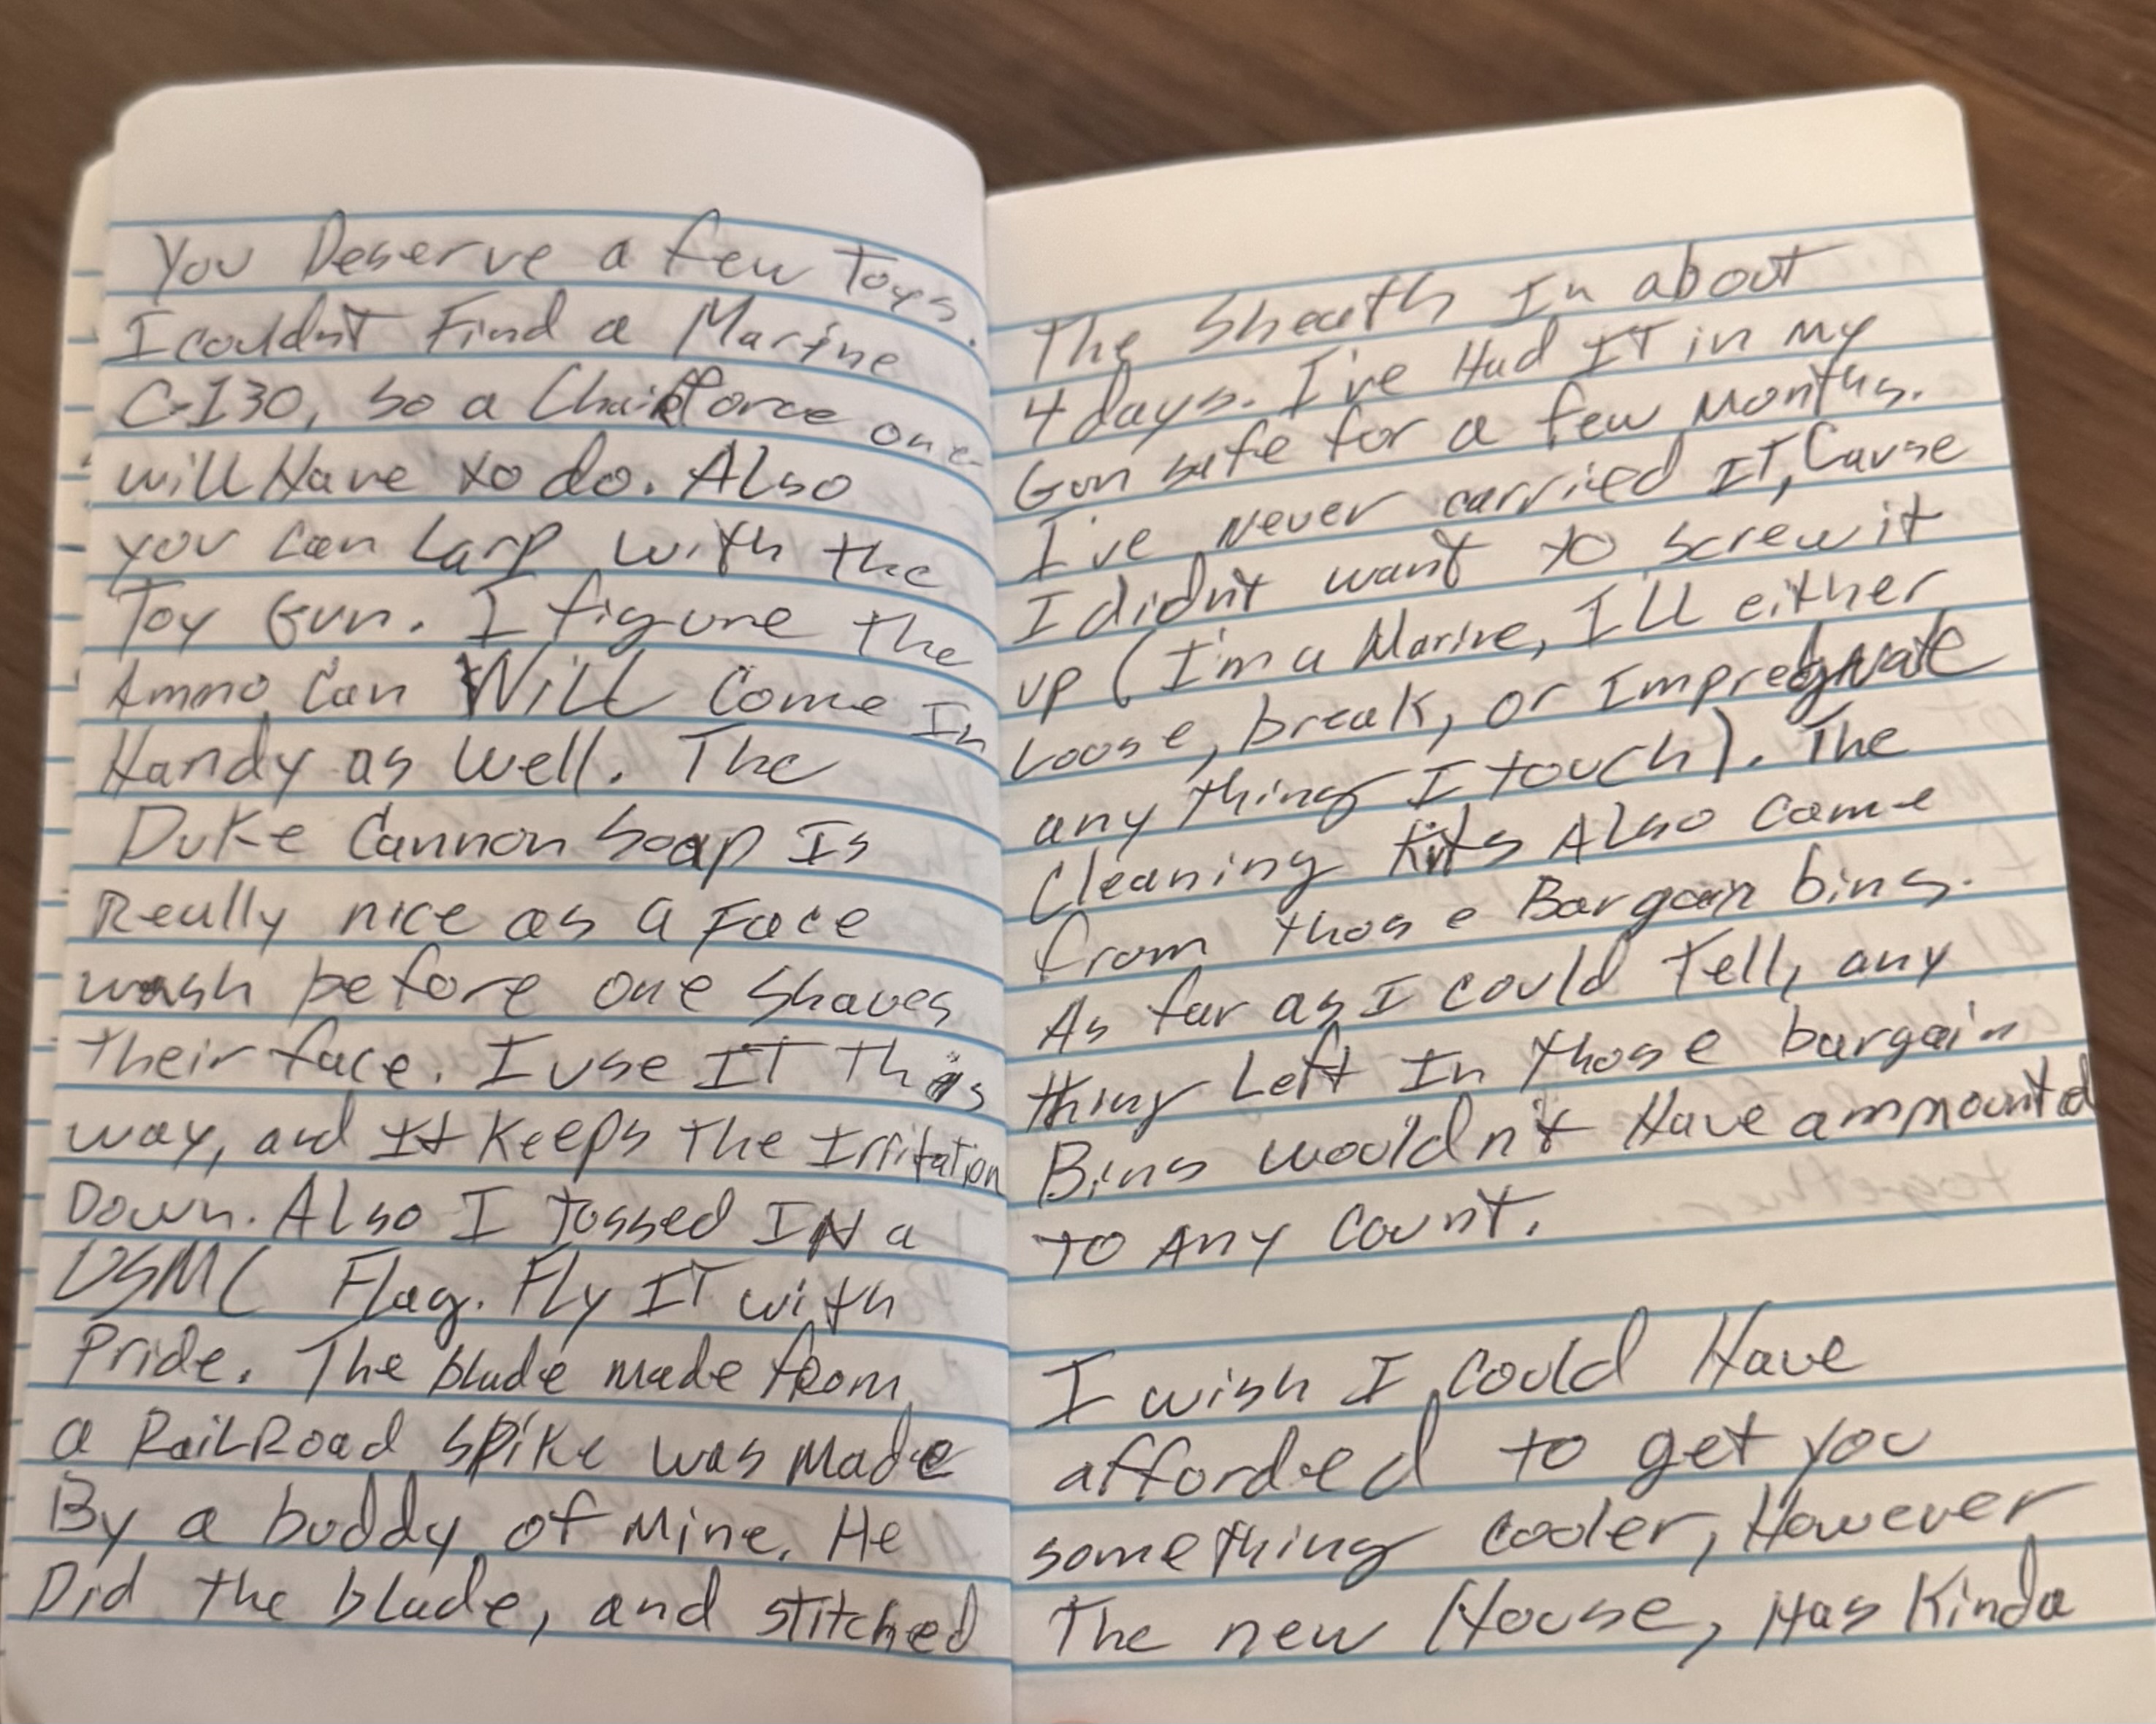 You Deserve a few Toys.
I couldn't Find a Marine
C-130, so a Chairforce one
will Have to do. Also
you can Larp with the
Toy Gun. I figure the
Ammo Can Will Come In
Handy as Well. The
Duke Cannon Soap Is
Really nice as a Face
wash before one shaves
their face. I use IT This
way, and It Keeps The Irritation
Down. Also I Tossed IN a
USMC Flag. Fly IT with
Pride. The blade made from
a RailRoad spike was Made
By a buddy of Mine. He
Did the blade, and stitched
The Sheath In about
4 days. I've Had IT in my
Gun safe for a few Months.
I've Never carried IT, Cause
I didn't want to screw it
up (I'm a Marine, I'LL either
Loose, break, or Impregnate
any thing I touch). The
Cleaning Kits Also Came
from those Bargain bins.
As far as I could Tell, any
thing Left In those bargain
Bins wouldn't Have ammounted
TO ANY Count.
I wish I could Have
afforded to get you
something cooler, However
The new House, Has Kinda